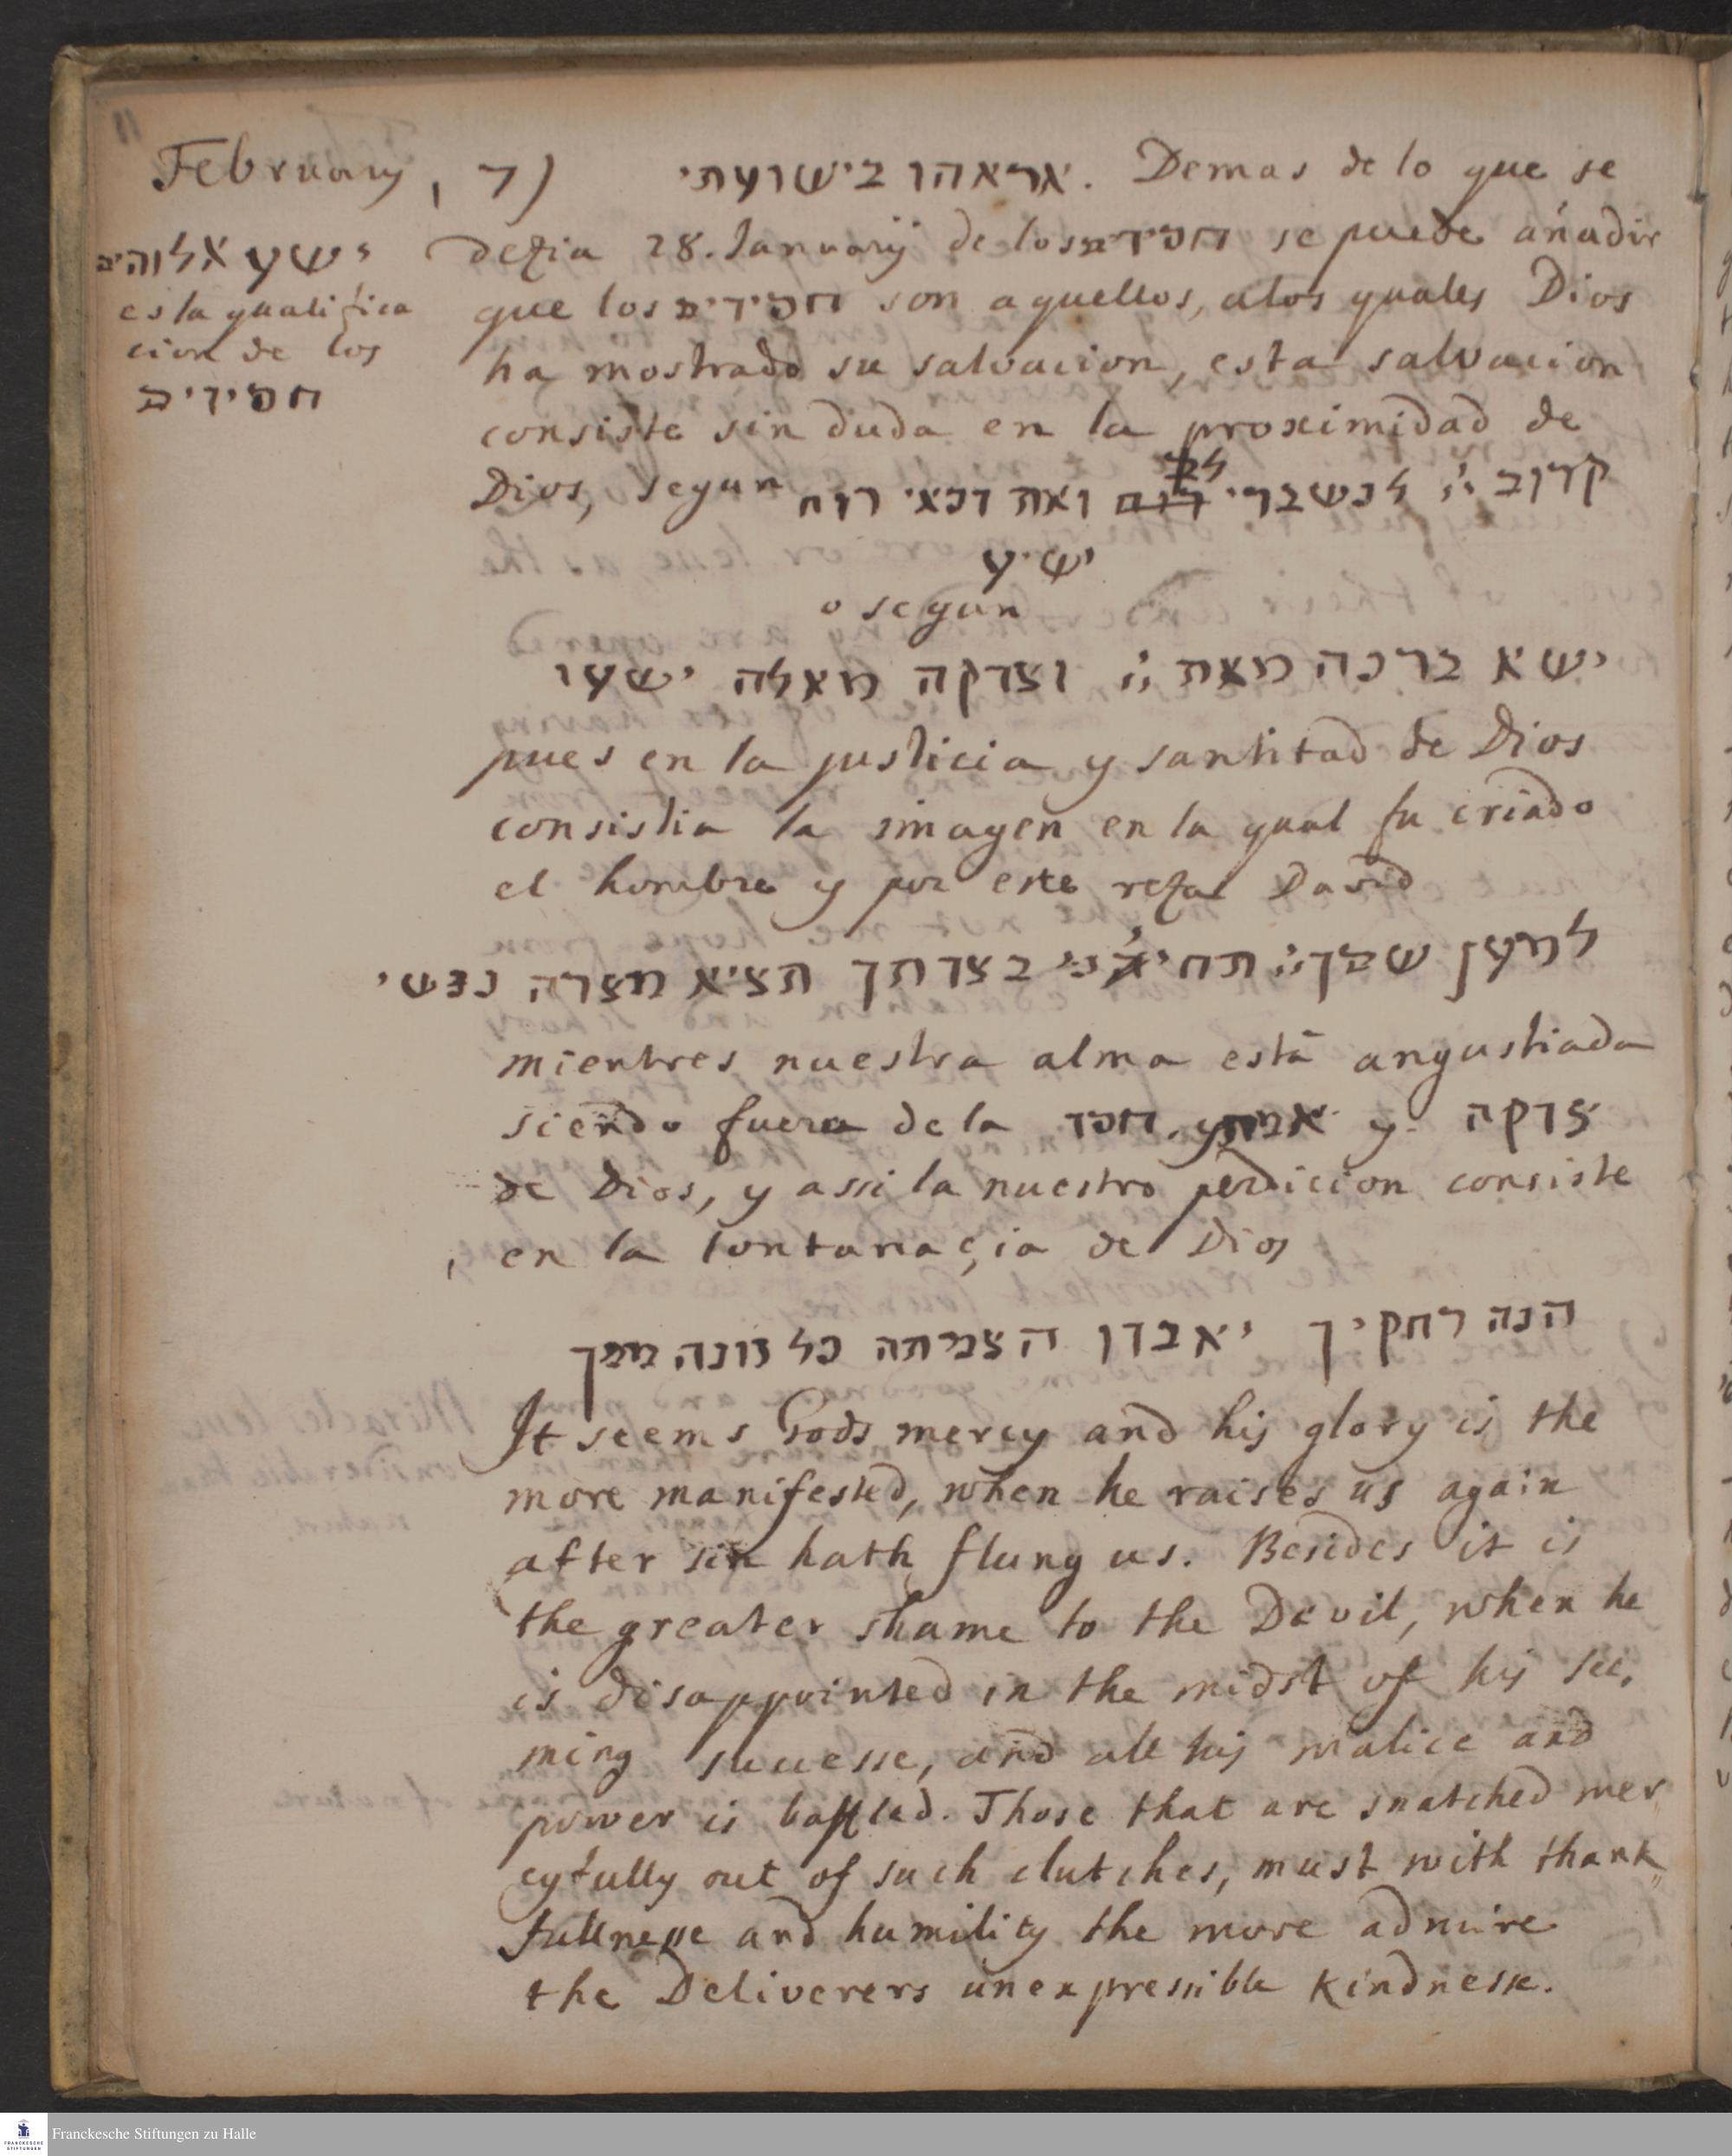 February, 7) אראהו בישועתי. Demas de lo que se
dezia 28. Januarij de los חסידים se puede añadir
que los חסידים son aquellos, alos quales Dios
ha mostrado su salvacion, esta salvacion
consiste sin duda en la proximidad de
Dios, segun קרוב יי לנשברי רוח לב ואת דכאי רוח
יש׳ע
o segun
ישא ברכה מאת יי וצדקה מאלה ישעו
pues en la justicia y santitad de Dios
consistia la imagen en la qual fu criado
el hombre y por este rezal David
למען שמך יי תחיני בצדתך תציא מצרה נפשי
mientres nuestra alma está angustiada
siendo fuera de la חסד, אמת y צדקה
de Dios, y assi la nuestro perdicion consiste
en la lontanaçia de Dios
הנה רחקיך יאבדו הצמתה כל זונה ממך
It seems Gods mercy and his glory is the
more manifested, when he raises us again
after sin hath flung us. Besides it is
the greater shame to the Devil, when he
is disappointed in the midst of his see,
ming successe, and all his malice and
power is baffled. Those that are snatched mer
cyfully out of such clutches, must with thank,,
fullnesse and humility the more admire
the Deliverers unexpressible kindnesse.
ישע אלוהים
es la qualifica
cion de los
חסידים
Franckesche Stiftungen zu Halle
FRANCKESCHE
STIFTUNGEN